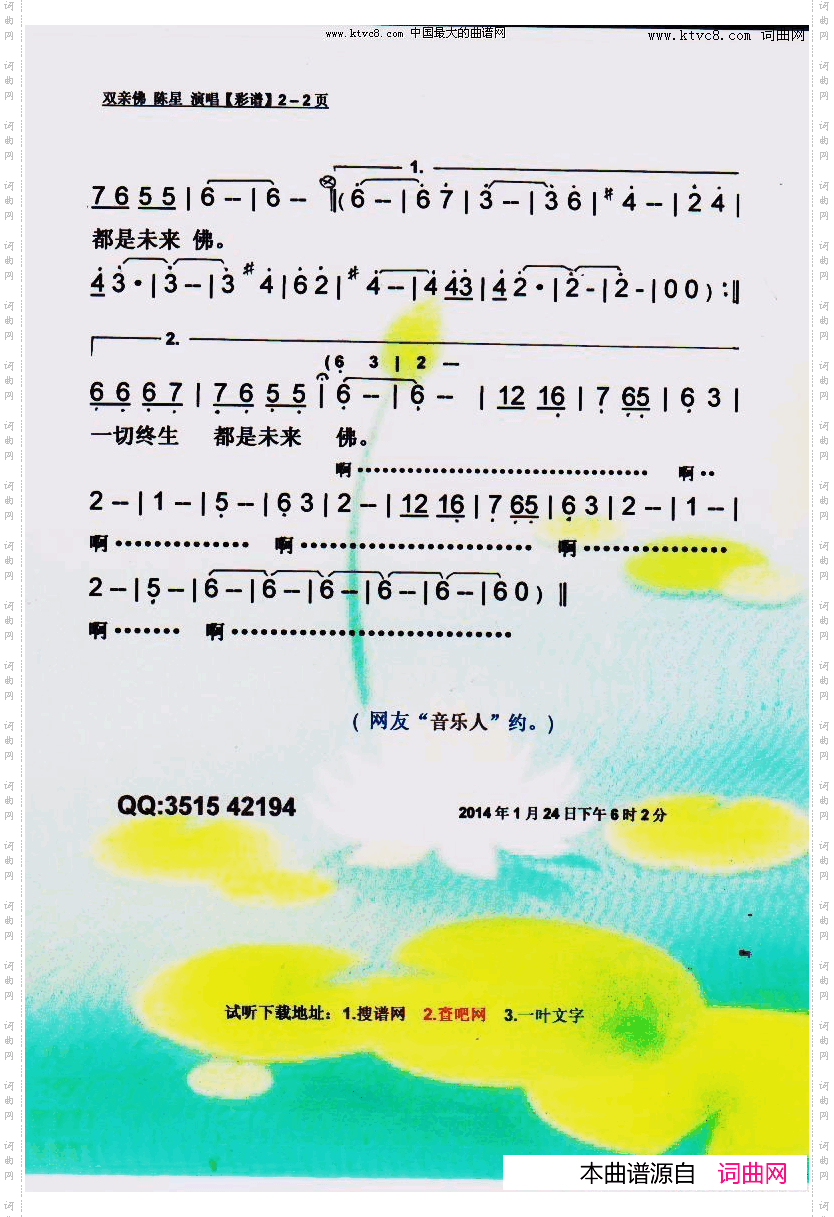 www.ktvc8.com 中国最大的曲谱网
www.ktvc8.com 词曲网
双亲佛 陈星 演唱【彩谱】2－2页
1.
7 6 5 5 | 6 -- | 6 -- ‖( 6 -- | 6 7 | 3 -- | 3 6 | #4 -- | 2 4 |
都是未来 佛。
4 3· | 3 -- | 3 #4 | 6 2 | #4 -- | 4 43 | 4 2· | 2 - | 2 - | 0 0 ) :‖
2.
(6 3 | 2 --
6 6 6 7 | 7 6 5 5 | 6 -- | 6 -- | 12 16 | 7 65 | 6 3 |
一切终生 都是未来 佛。
啊………………………… 啊‥
2 -- | 1 -- | 5 -- | 6 3 | 2 -- | 12 16 | 7 65 | 6 3 | 2 -- | 1 -- |
啊………… 啊………………… 啊…………
2 -- | 5 -- | 6 -- | 6 -- | 6 -- | 6 -- | 6 -- | 6 0 ) ‖
啊……… 啊……………………
( 网友“音乐人”约。)
QQ:3515 42194
2014年1月24日下午6时2分
试听下载地址：1.搜谱网 2.查吧网 3.一叶文字
本曲谱源自 词曲网